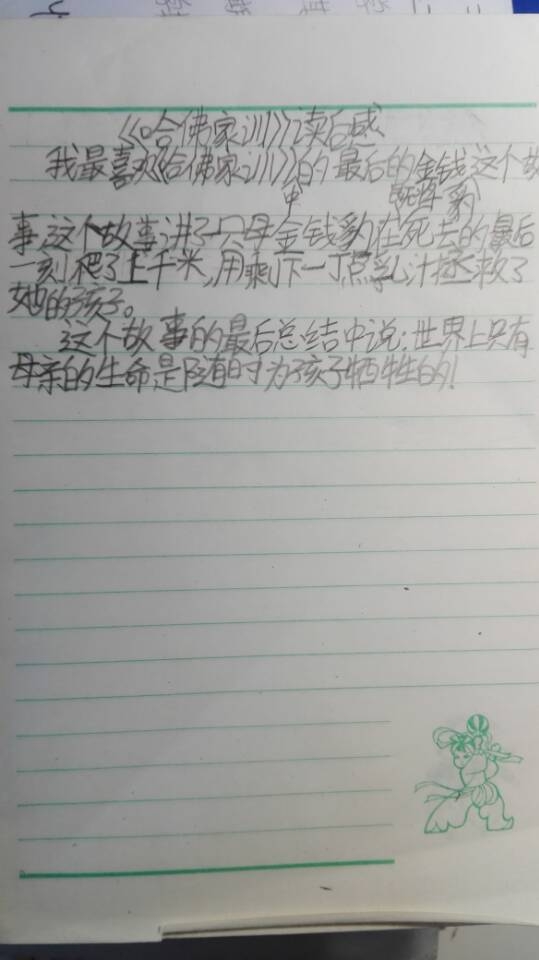 《哈佛家训》读后感
我最喜欢《哈佛家训》的最后的金钱这个故
中 豹
事,这个故事讲了一只母金钱豹在死去的最后
一刻爬了上千米,用剩下一丁点乳汁拯救了
她的孩子。
这个故事的最后总结中说:世界上只有
母亲的生命是随时为孩子牺牲的!